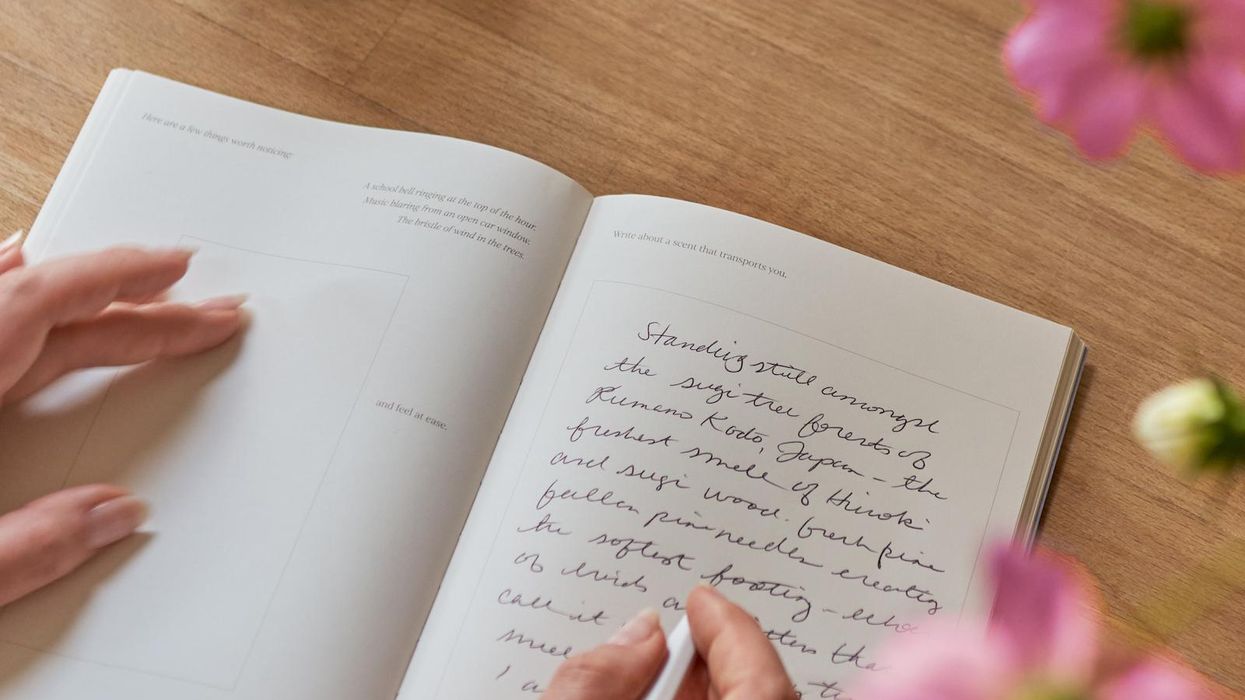 Here are a few things worth noticing:
A school bell ringing at the top of the hour.
Music blaring from an open car window.
The bristle of wind in the trees.
and feel at ease.
Write about a scent that transports you.
Standing still amongst
the sugi tree forests of
Kumano Kodo, Japan – the
freshest smell of Hinoki
and sugi wood. fresh pine
fallen pine needles creating
the softest footing – echo
of birds
call it
I a